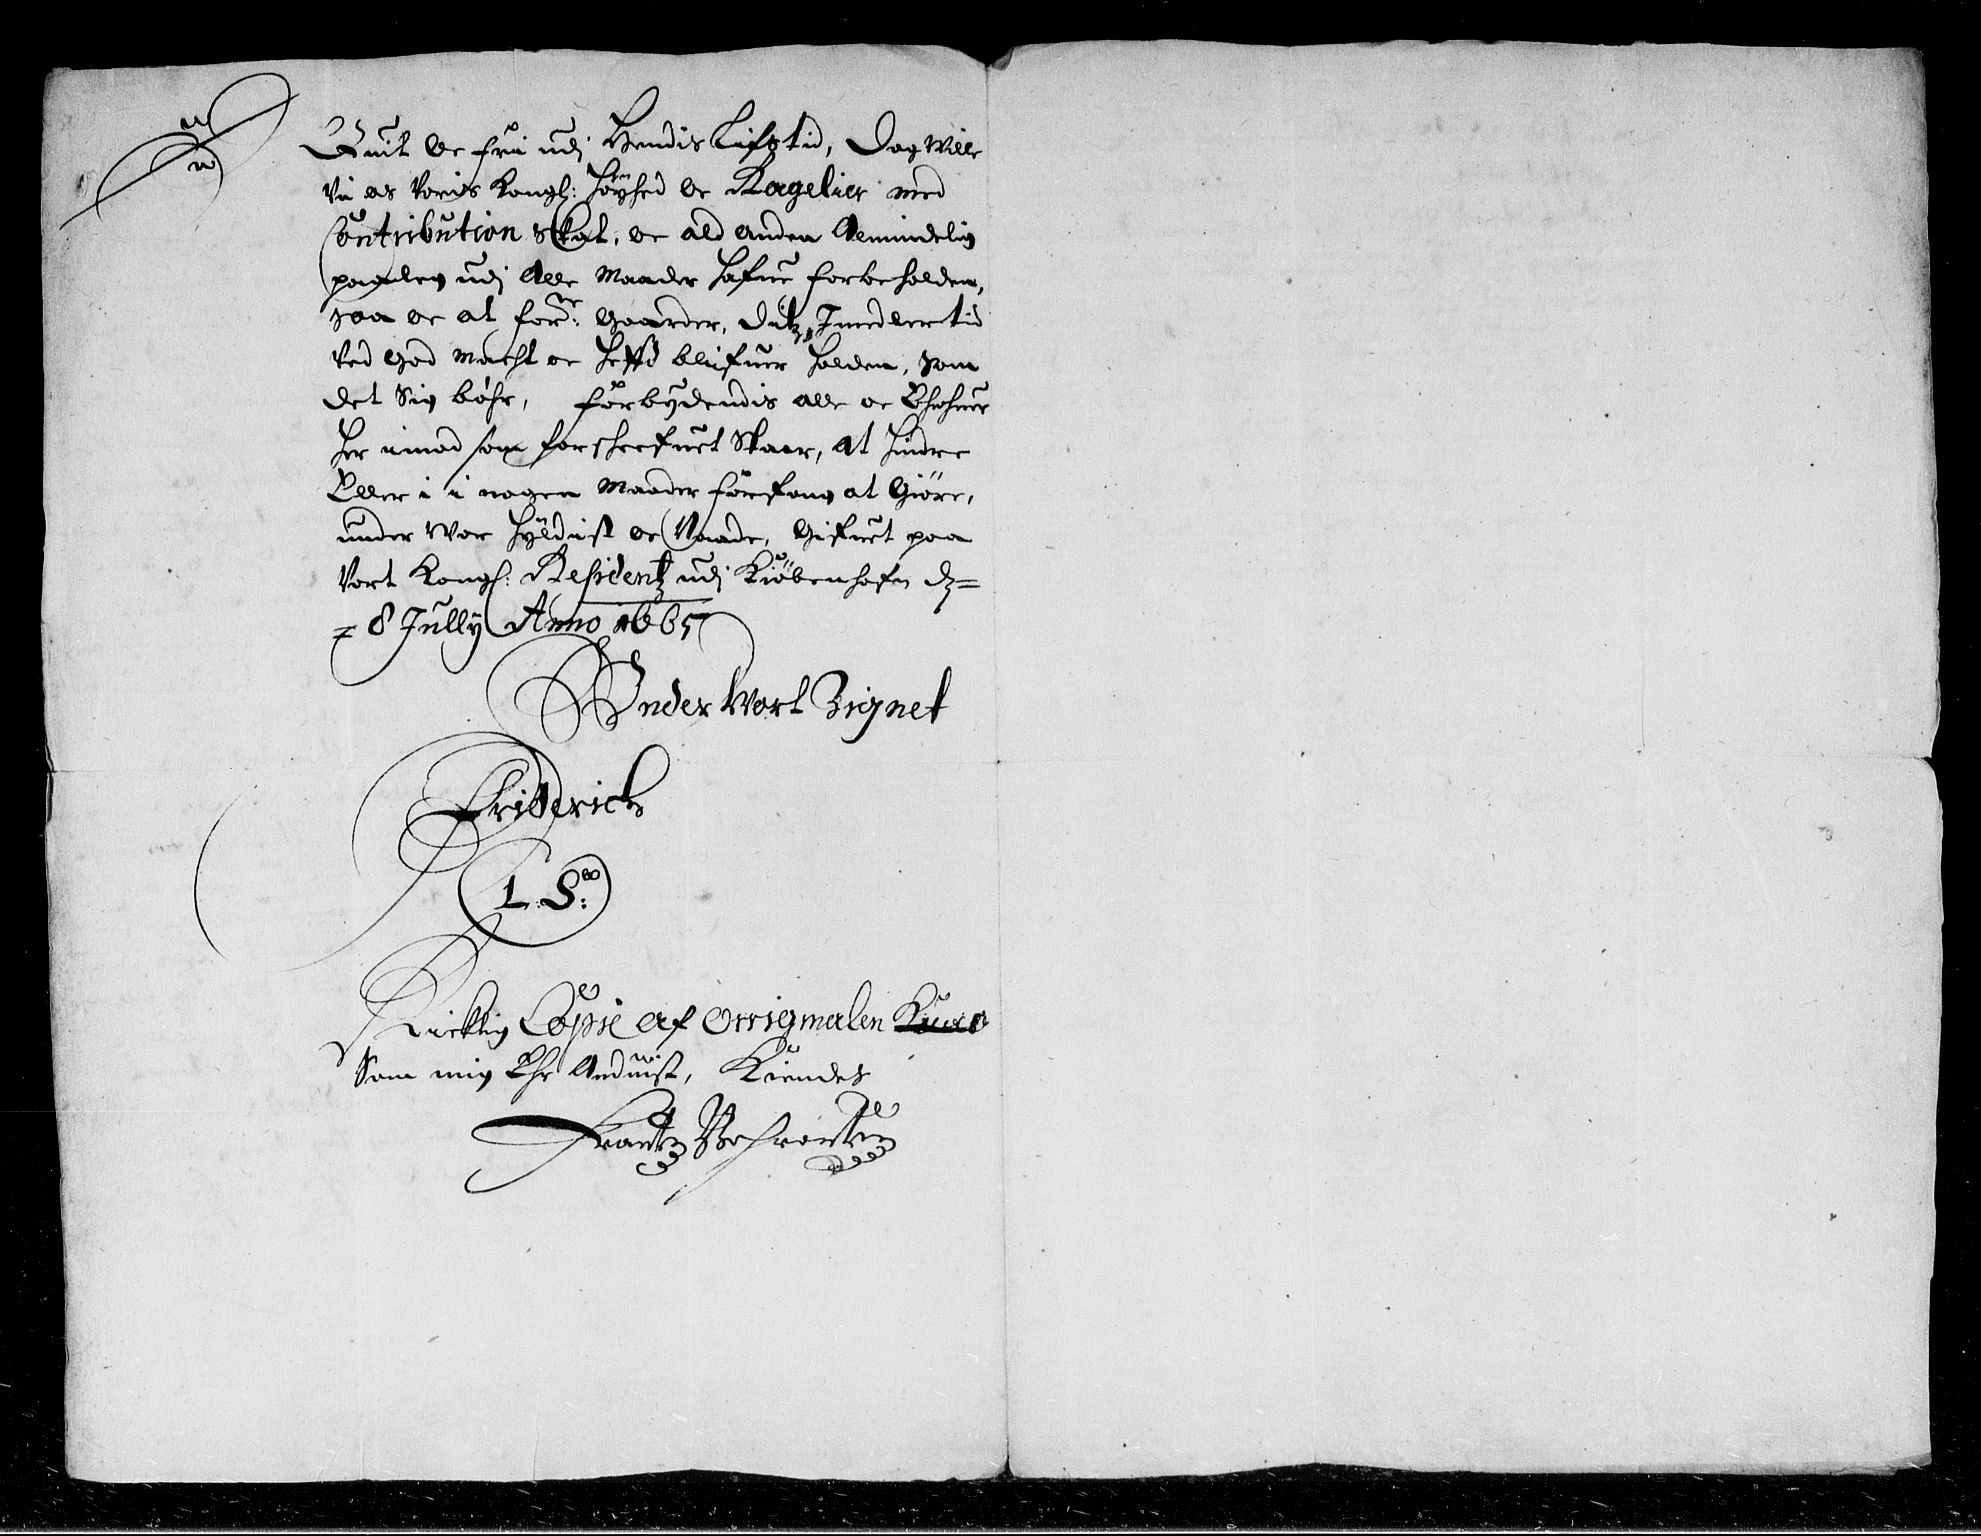 Quit oc frii udj Hendis Lifstid, Dog Wille
Vi os Voris Kongl: Høyhed oc Ragelier med
Contribution Skat, oc ald anden Almindelig
paaleg udj Alle Maader hafue forbeholden,
saa oc at for:ne Gaarder, Imedlertid
Ved God Macht oc Heffd blifuer holden, som
det Sig bøhr, forbydendis alle oc Ehrhuer
her imod som forschrefuet Staar, at hindre
Eller i nogen Maader forfang at Giöre,
under Wor hyldist oc Naade, Gifuet paa
Vort Kongl: Residentz udj Kiöbenhafn dz=
= 8 Jully Anno 1665
Under Wort Zignet
Friderich
L. S:
Ricktig Copie af Orriginalen
Som mig Ehr Anduist, Kiendes
Frantz